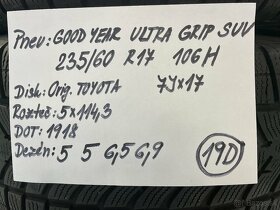 Pneu: GOOD YEAR ULTRA GRIP SUV
235/60 R17 106H
Disk: Orig. TOYOTA 7Jx17
Rozteč: 5x114,3
DOT: 1918
Dezén: 5 5 6,5 6,9 19D